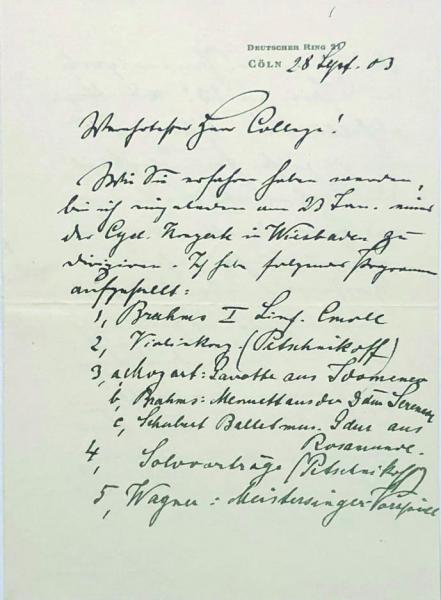 DEUTSCHER RING 21
CÖLN 28 Sept. 03
Verehrtester Herr College!
Wie Sie erfahren haben werden,
bin ich eingeladen am 23 Jan. eines
der Cycl. Konzerte in Wiesbaden zu
dirigiren. Ich habe folgendes Programm
aufgestellt:
1, Brahms I Sinf. Cmoll
2, Violinkonz. (Petschnikoff)
3, a Mozart: Gavotte aus Idomeneo
b, Brahms: Menuett aus der Ddur Serenade
c, Schubert Balletmus. Gdur aus
Rosamunde.
4, Solovorträge (Petschnikoff)
5, Wagner: Meistersinger-Vorspiel